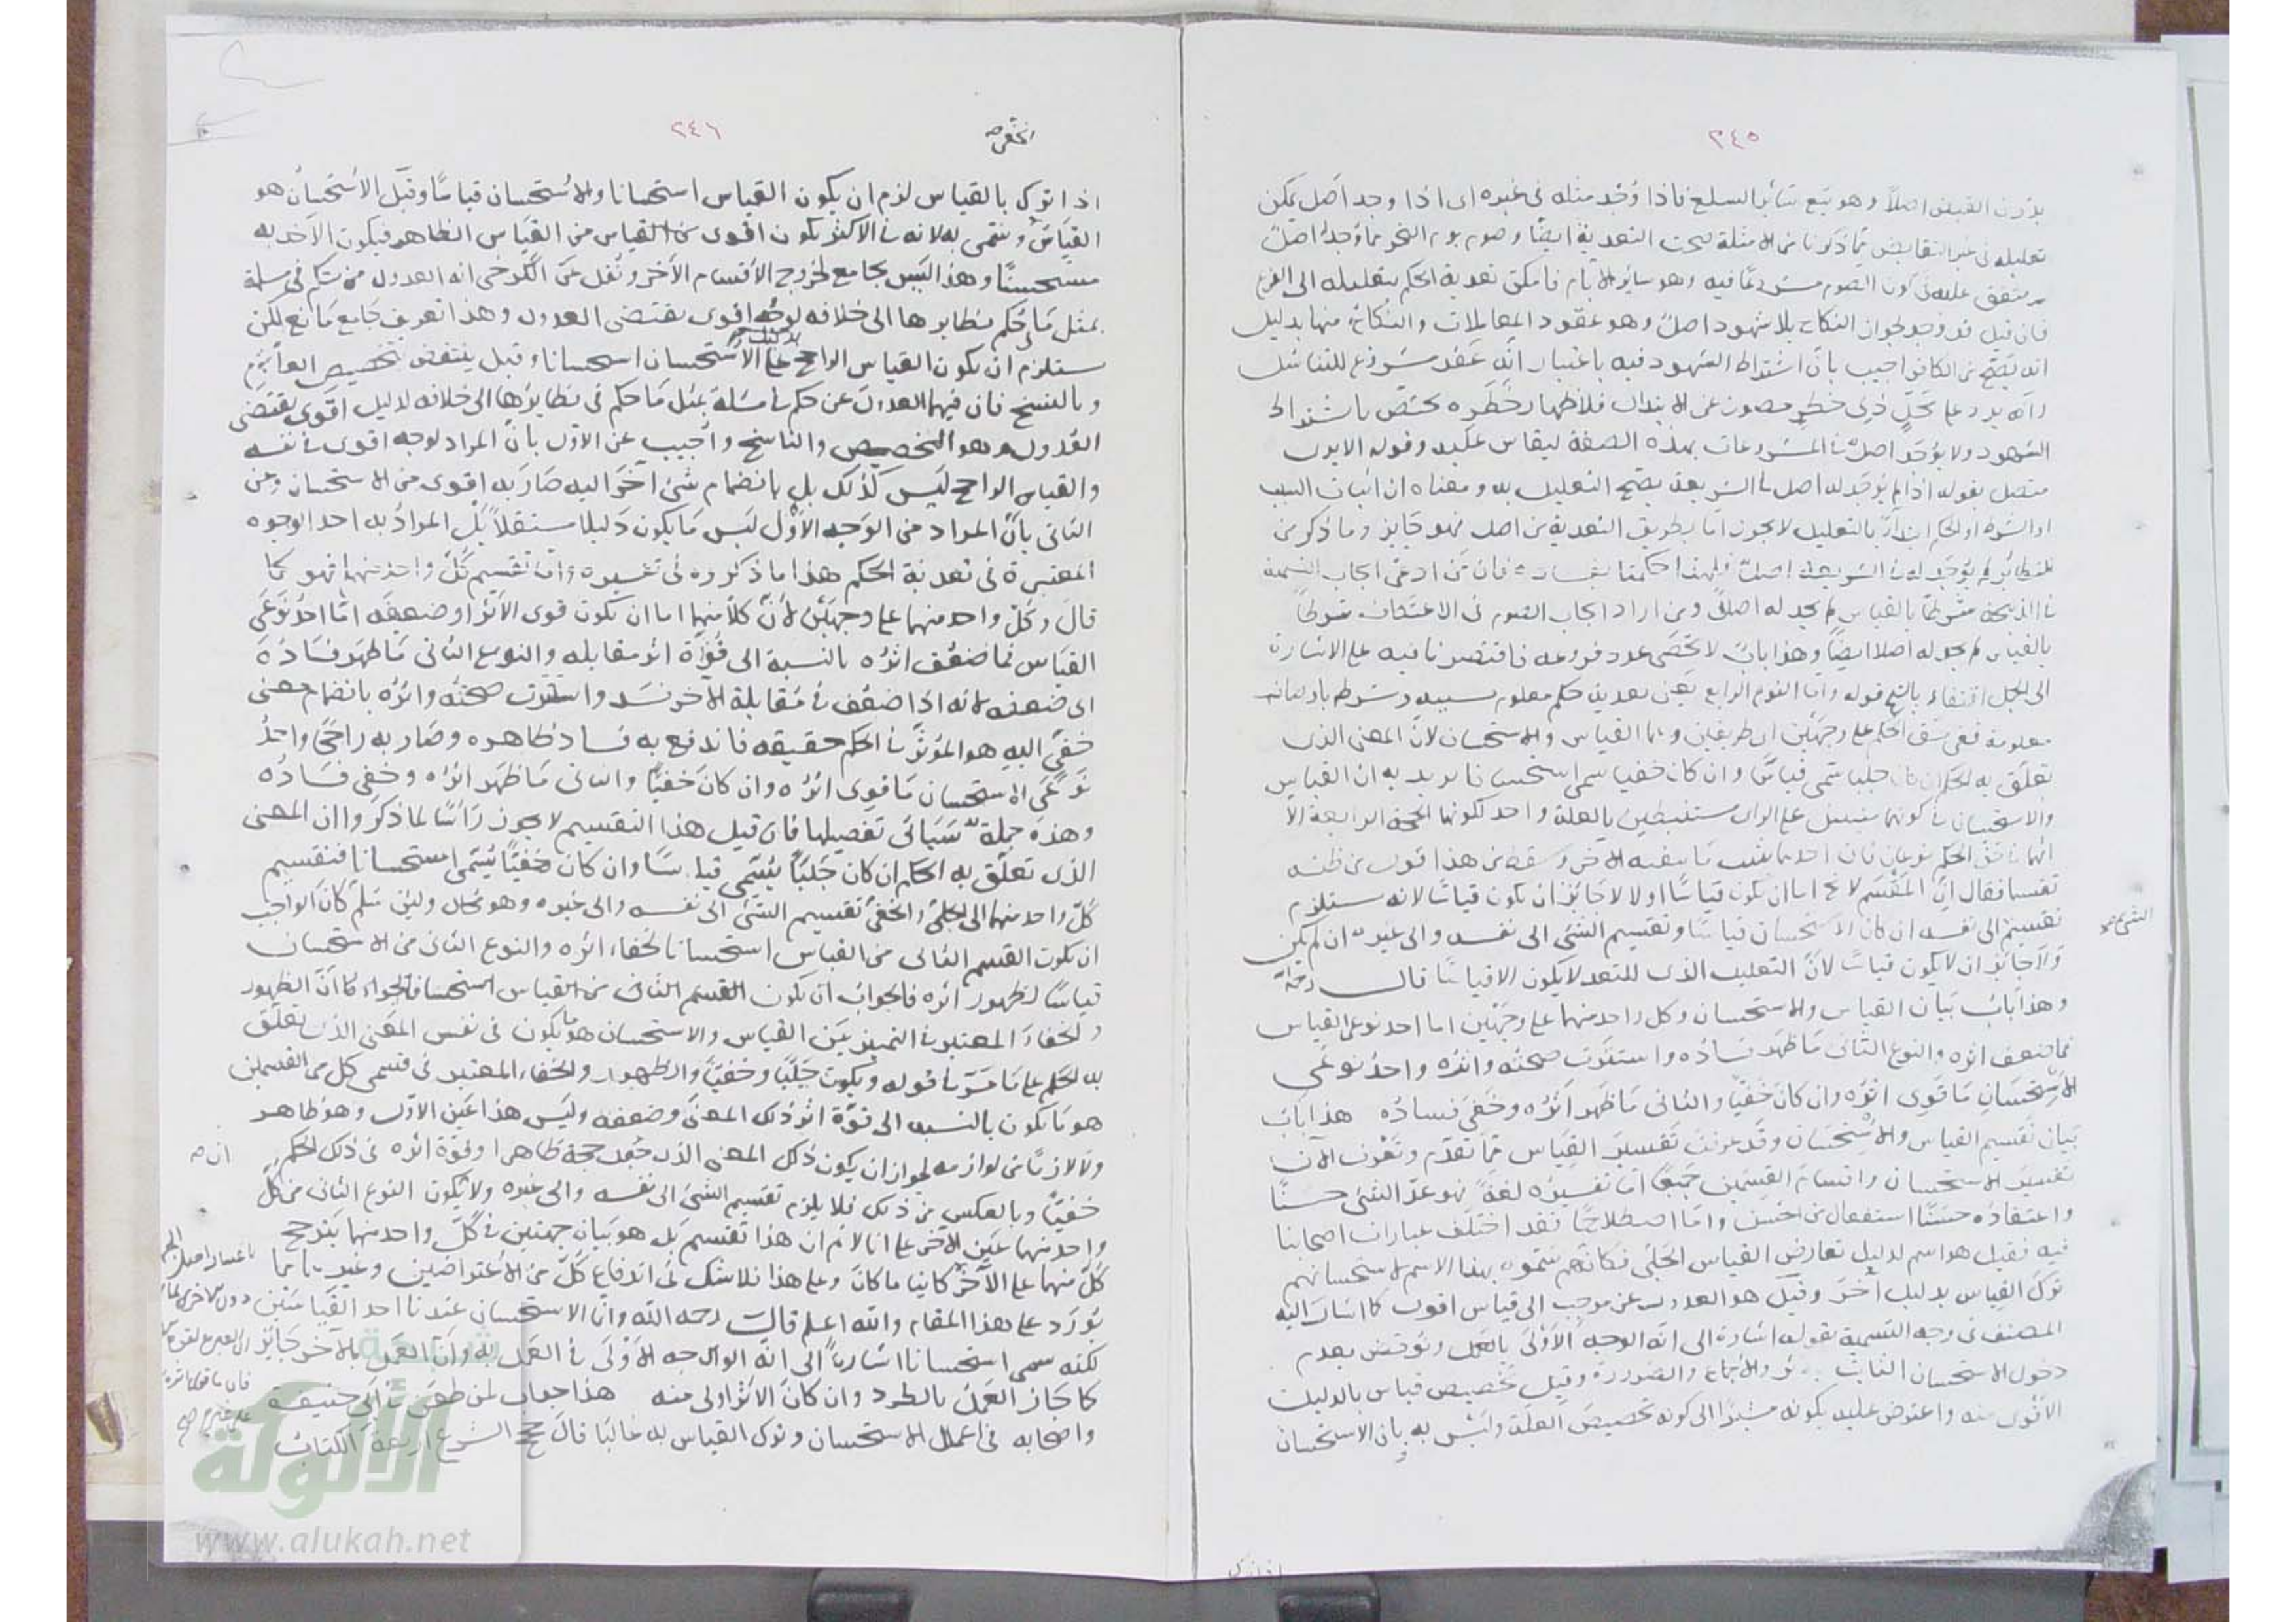 ٢٤٥
بدون القبض اصلا وهو بيع سائر السلع فاذا وُجد مثله فى غيره اى اذا وجد اصل يمكن
تعليله فى غير التقابض مما ذكرنا من الامثلة صحت التعدية ايضا وصوم يوم النحر مما وُجد اصل
متفق عليه فى كون الصوم مشروعا فيه وهو سائر الايام فامكن تعدية الحكم بتعليله الى الفرع
فان قيل قد وجد لجواز النكاح بلا شهود اصل وهو عقود المعاملات والنكاح منها بدليل
انه يصح من الكافر اجيب بان اشتراط الشهود فيه باعتبار انه عقد مشروع للتناسل
وانه يرد على محل ذى خطر مصون عن الابتذال فلاظهار خطره يختص باشتراط
الشهود ولا يوجد اصل فى المشروعات بهذه الصفة ليقاس عليه وقوله
متصل بقوله اذا لم يوجد له اصل فى الشريعة يصح التعليل به ومعناه ان اثبات السبب
او الشرط او الحكم ابتداء بالتعليل لا يجوز اما بطريق التعدية من اصل فهو جايز وما ذكر من
النظائر لم يوجد له فى الشريعة اصل فلهذا حكمنا بفساده فان من ادعى ايجاب التسمية
فى الذبيحة شرطا بالقياس لم يجد له اصلا ومن اراد ايجاب الصوم فى الاعتكاف شرطا
بالقياس لم يجد له اصلا ايضا وهذا باب لا تحصى عدد فروعه فاقتصرنا فيه على الاشارة
الى الجمل اقتفاء بالشيخ قوله واما النوع الرابع يعنى تعدية حكم معلوم بسببه وشرطه باوصاف
معلومة فعلى شق الحكم على وجهين اى طريقين وهما القياس والاستحسان لان المعنى الذى
تعلق به الحكم ان كان جليا سمى قياسا وان كان خفيا سمى استحسانا يريد به ان القياس
والاستحسان فى كونهما مستنبطين بالعلة واحد لكونهما الحجة الرابعة الا
تقسيما فقال ان المقسم لا يخ اما ان يكون قياسا او لا لا جائز ان يكون قياسا لانه يستلزم
تقسيم الى نفسه ان كان الاستحسان قياسا وتقسيم الشئ الى نفسه والى غيره ان لم يكن
ولا جائز ان لا يكون قياسا لان التعليل الذى للتعد لا يكون الا قياسا قال رحمه
وهذا باب بيان القياس والاستحسان وكل واحد منهما على وجهين اما احد نوعى القياس
فما ضعف اثره والنوع الثانى ما ظهر فساده واستترت صحته واثره واحد نوعى
الاستحسان ما قوى اثره وان كان خفيا والثانى ما ظهر اثره وخفى فساده هذا باب
بيان تقسيم القياس والاستحسان وقد عرفت تفسير القياس مما تقدم وتعرف الآن
تفسير الاستحسان واقسام القسمين جميعا اما تفسيره لغة فهو عدّ الشئ حسنا
واعتقاده حسنا استفعال من الحسن واما اصطلاحا فقد اختلف عبارات اصحابنا
فيه فقيل هو اسم لدليل تعارض القياس الجلى فكانهم سموه بهذا الاسم لاستحسانهم
ترك القياس بدليل آخر وقيل هو العدول عن موجب الى قياس اقوى كما اشار اليه
المصنف فى وجه التسمية بقوله اشارة الى انه الوجه الاولى بالعمل ونوقض بعدم
دخول الاستحسان الثابت والاجماع والضرورة وقيل تخصيص قياس بالدليل
الاقوى منه واعترض عليه بكونه مشيرا الى كونه تخصيص العلة وليس به وبان الاستحسان
٢٤٦
اذا ترك بالقياس لزم ان يكون القياس استحسانا والاستحسان قياسا وقيل الاستحسان هو
القياس وسمى به لانه فى الاكثر يكون اقوى من القياس من القياس الظاهر فيكون الاخذ به
مستحسنا وهذا ليس بجامع لخروج الاقسام الاخر ونقل عن الكرخى انه العدول من حكم فى مسئلة
بمثل ما حكم بنظايرها الى خلافه لوجه اقوى يقتضى العدول وهذا تعريف جامع مانع لكن
يستلزم ان يكون القياس الراجح على الاستحسان استحسانا وقيل ينتقض بتخصيص العام
وبالنسخ فان فيهما العدول عن حكم فى مسئلة بمثل ما حكم فى نظايرها الى خلافه لدليل اقوى يقتضى
العدول وهو التخصيص والناسخ واجيب عن الاول بان المراد لوجه اقوى فى نفسه
والقياس الراجح ليس كذلك بل بانضمام شئ آخر اليه صار به اقوى من الاستحسان وعن
الثانى بان المراد من الوجه الاول ليس ما يكون دليلا مستقلا بل المراد به احد الوجوه
المعتبرة فى تعدية الحكم هذا ما ذكروه فى تفسيره واما تقسيم كل واحد منهما فهو كما
قال وكل واحد منهما على وجهين لان كلا منهما اما ان يكون قوى الاثر او ضعيفه اما احد نوعى
القياس فما ضعف اثره بالنسبة الى قوة اثر مقابله والنوع الثانى ما ظهر فساده
اى ضعفه لانه اذا ضعف فى مقابلة الاخر فسد واستترت صحته واثره بانضمام معنى
خفى اليه هو المؤثر فى الحكم حقيقه فاندفع به فساد ظاهره وصار به راجحا واحد
نوعى الاستحسان ما قوى اثره وان كان خفيا والثانى ما ظهر اثره وخفى فساده
وهذه جملة سيأتى تفصيلها فان قيل هذا التقسيم لا يجوز راسا لما ذكروا ان المعنى
الذى تعلق به الحكم ان كان جليا يسمى قياسا وان كان خفيا يسمى استحسانا فتقسيم
كل واحد منهما الى الجلى والخفى تقسيم الشئ الى نفسه والى غيره وهو محال ولئن سلم كان الواجب
ان يكون القسم الثانى من القياس استحسانا لخفاء اثره والنوع الثانى من الاستحسان
قياسا لظهور اثره فالجواب ان يكون القسم الثانى من القياس استحسانا فالجواب ان الظهور
والخفاء المعتبر فى التميز بين القياس والاستحسان هو ما يكون فى نفس المعنى الذى تعلق
به الحكم على ما مر فى قوله ويكون جليا وخفيا والظهور والخفاء المعتبر فى قسمى كل من القسمين
هو ما يكون بالنسبه الى قوة اثر ذلك المعنى وضعفه وليس هذا عين الاول وهو ظاهر
ولا لازما من لوازمه لجواز ان يكون ذلك المعنى الذى جعل حجة ظاهرا وقوة اثره فى ذلك الحكم
خفيا وبالعكس من ذلك فلا يلزم تقسيم الشئ الى نفسه والى غيره ولا يكون النوع الثانى من كل
واحد منهما عين الاخر على انا لا نم ان هذا تقسيم بل هو بيان جهتين فى كل واحد منهما يترجح
كل منهما على الآخر كائنا ما كان وعلى هذا فلا شك فى اندفاع كل من الاعتراضين وغيرهما مما
يورد على هذا المقام والله اعلم قال رحمه الله وانما الاستحسان عندنا احد القياسين
لكنه سمى استحسانا اشارة الى انه الوجه الاولى فى العمل به وان العمل بالآخر جايز
كما جاز العمل بالطرد وان كان الاثر اولى منه هذا جواب لمن طعن فى ابى حنيفة
واصحابه فى اعمال الاستحسان وترك القياس به غالبا قال حجج الشرع اربعة الكتاب
شبكة
الألوكة
www.alukah.net